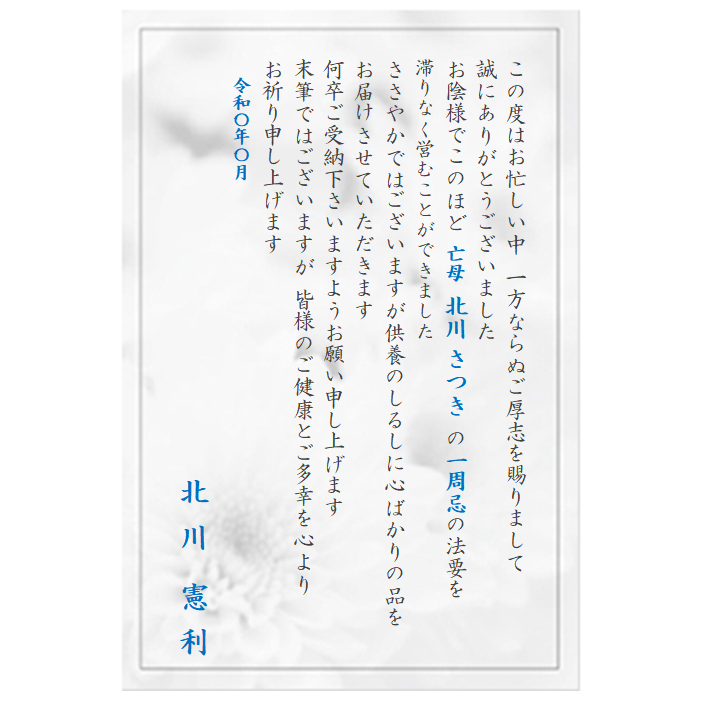 この度はお忙しい中 一方ならぬご厚志を賜りまして
誠にありがとうございました
お陰様でこのほど 亡母 北川 さつき の 一周忌の法要を
滞りなく営むことができました
ささやかではございますが供養のしるしに心ばかりの品を
お届けさせていただきます
何卒ご受納下さいますようお願い申し上げます
末筆ではございますが 皆様のご健康とご多幸を心より
お祈り申し上げます
令和〇年〇月
北川 憲利